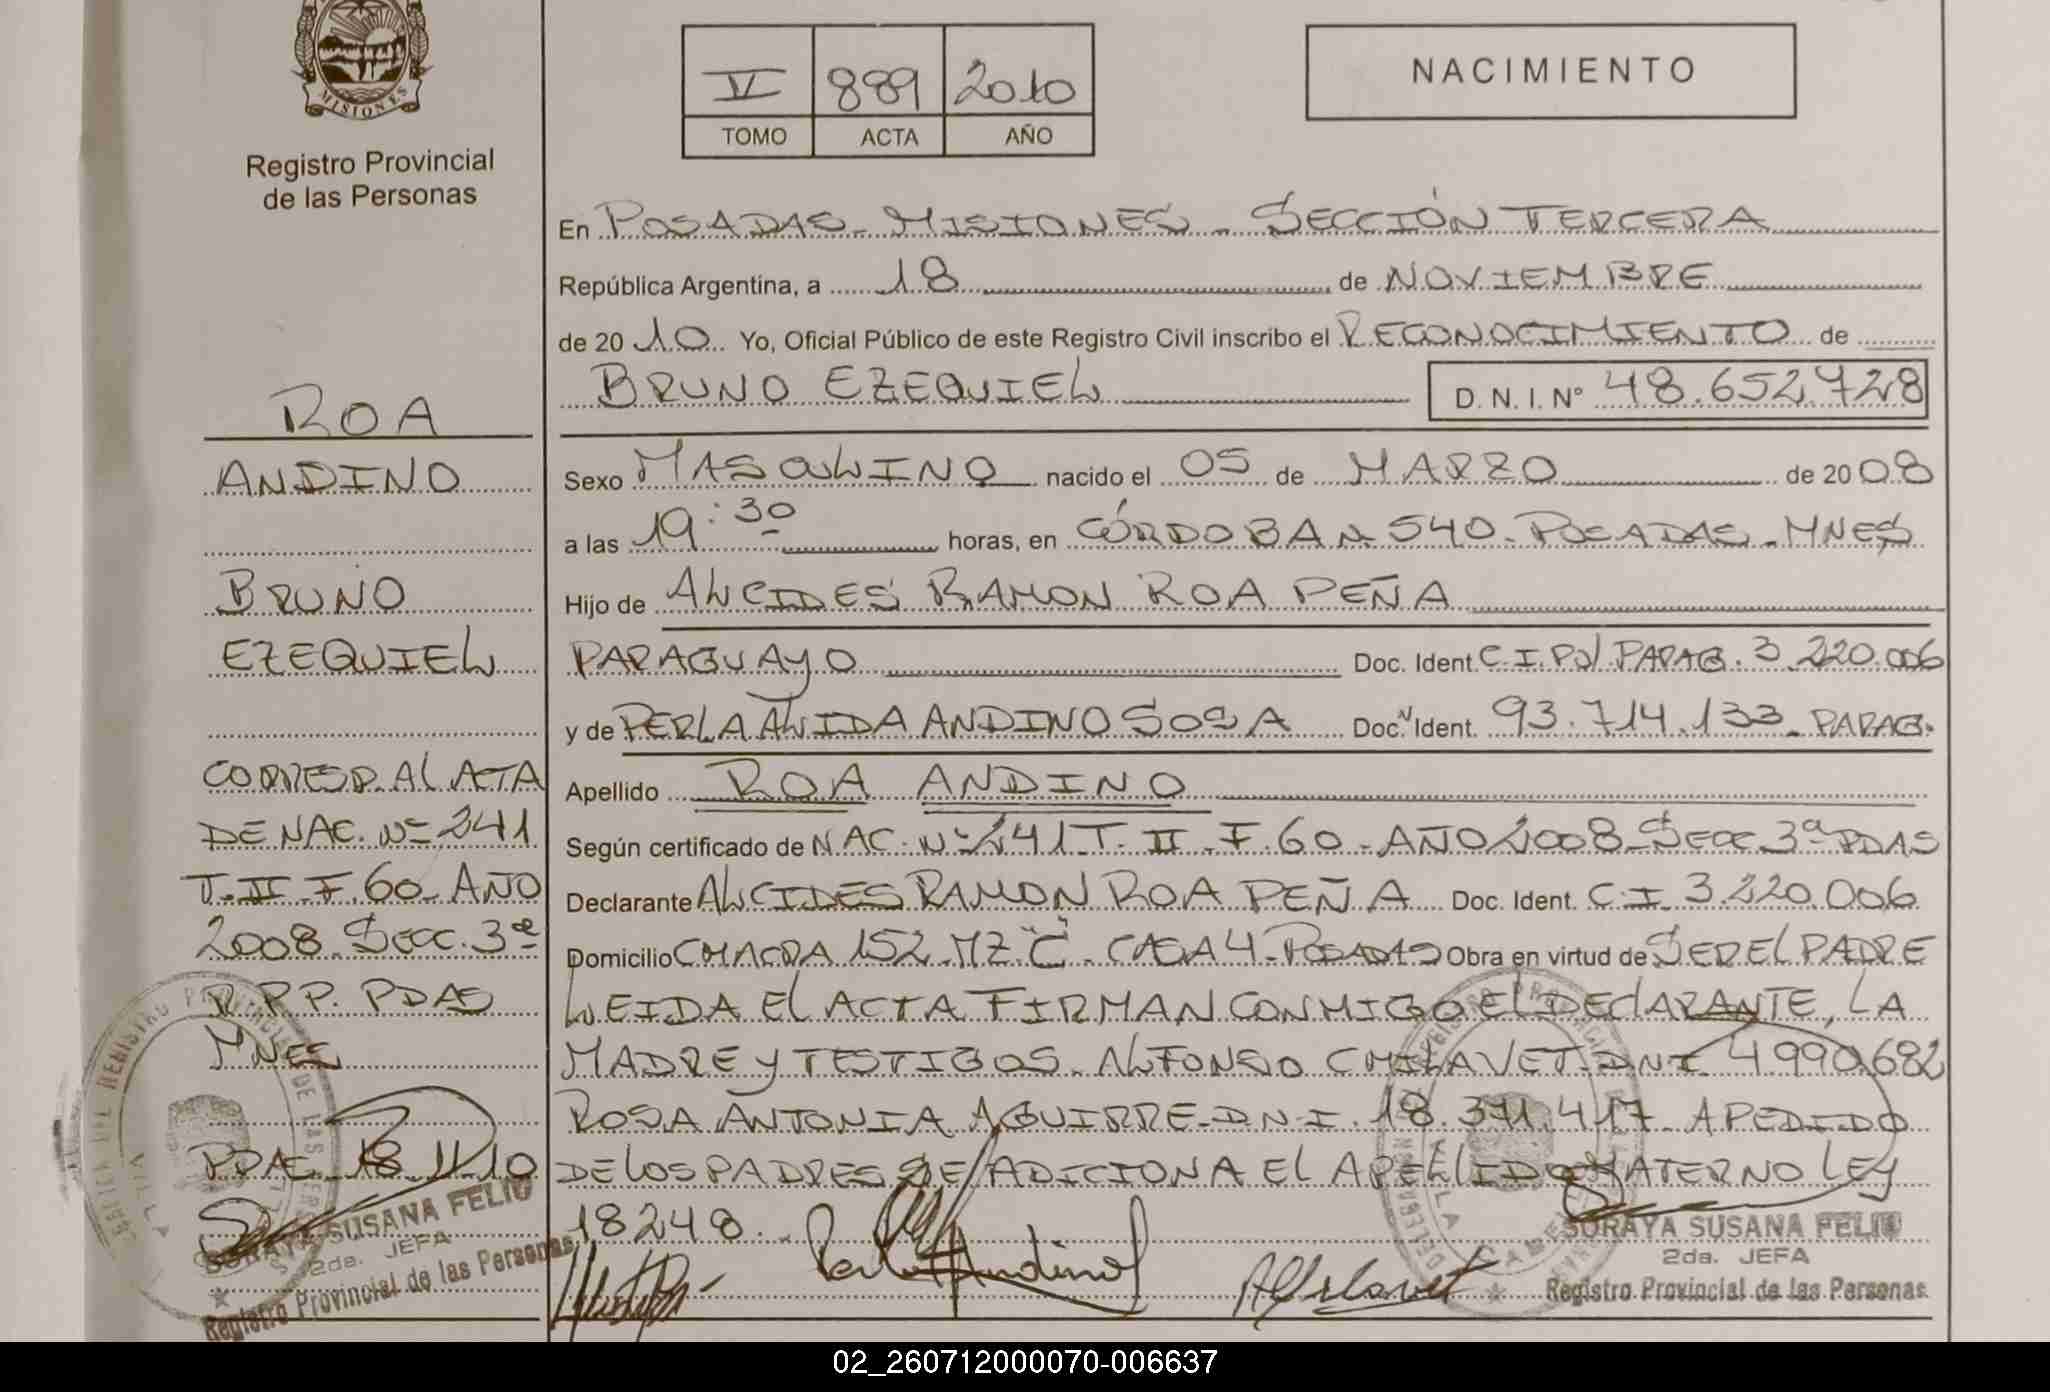 MISIONES
Registro Provincial
de las Personas
ROA
ANDINO
BRUNO
EZEQUIEL
CORRESP. AL ACTA
DE NAC. Nº 241
T. II F. 60 AÑO
2008. SECC. 3ª
R.P.P. PDAS
MNES
PPAL. 18.11.10
SORAYA SUSANA FELIU
2da. JEFA
Registro Provincial de las Personas
V 889 2010
TOMO ACTA AÑO
NACIMIENTO
En POSADAS - MISIONES - SECCIÓN TERCERA
República Argentina, a 18 de NOVIEMBRE
de 2010 Yo, Oficial Público de este Registro Civil inscribo el RECONOCIMIENTO de
BRUNO EZEQUIEL D. N. I. Nº 48.652.728
Sexo MASCULINO nacido el 05 de MARZO de 2008
a las 19:30 horas, en CÓRDOBA Nº 540 - POSADAS - MNES
Hijo de ALCIDES RAMON ROA PEÑA
PARAGUAYO Doc. Ident C.I. POL PARAG. 3.220.006
y de PERLA ALIDA ANDINO SOSA Doc. Ident. 93.714.133 - PARAG.
Apellido ROA ANDINO
Según certificado de NAC. Nº 241 T. II F. 60 - AÑO 2008 - SECC. 3ª PDAS
Declarante ALCIDES RAMON ROA PEÑA Doc. Ident. C.I. 3.220.006
Domicilio CHACRA 152 MZ. "C" CASA 4 - POSADAS Obra en virtud de SER EL PADRE
LEIDA EL ACTA FIRMAN CONMIGO EL DECLARANTE, LA
MADRE Y TESTIGOS. ALFONSO CHILAVET D.N.I. 4990.682
ROSA ANTONIA AGUIRRE - D.N.I. 18.371.417 - A PEDIDO
DE LOS PADRES SE ADICIONA EL APELLIDO MATERNO LEY
18248.
SORAYA SUSANA FELIU
2da. JEFA
Registro Provincial de las Personas
02_260712000070-006637